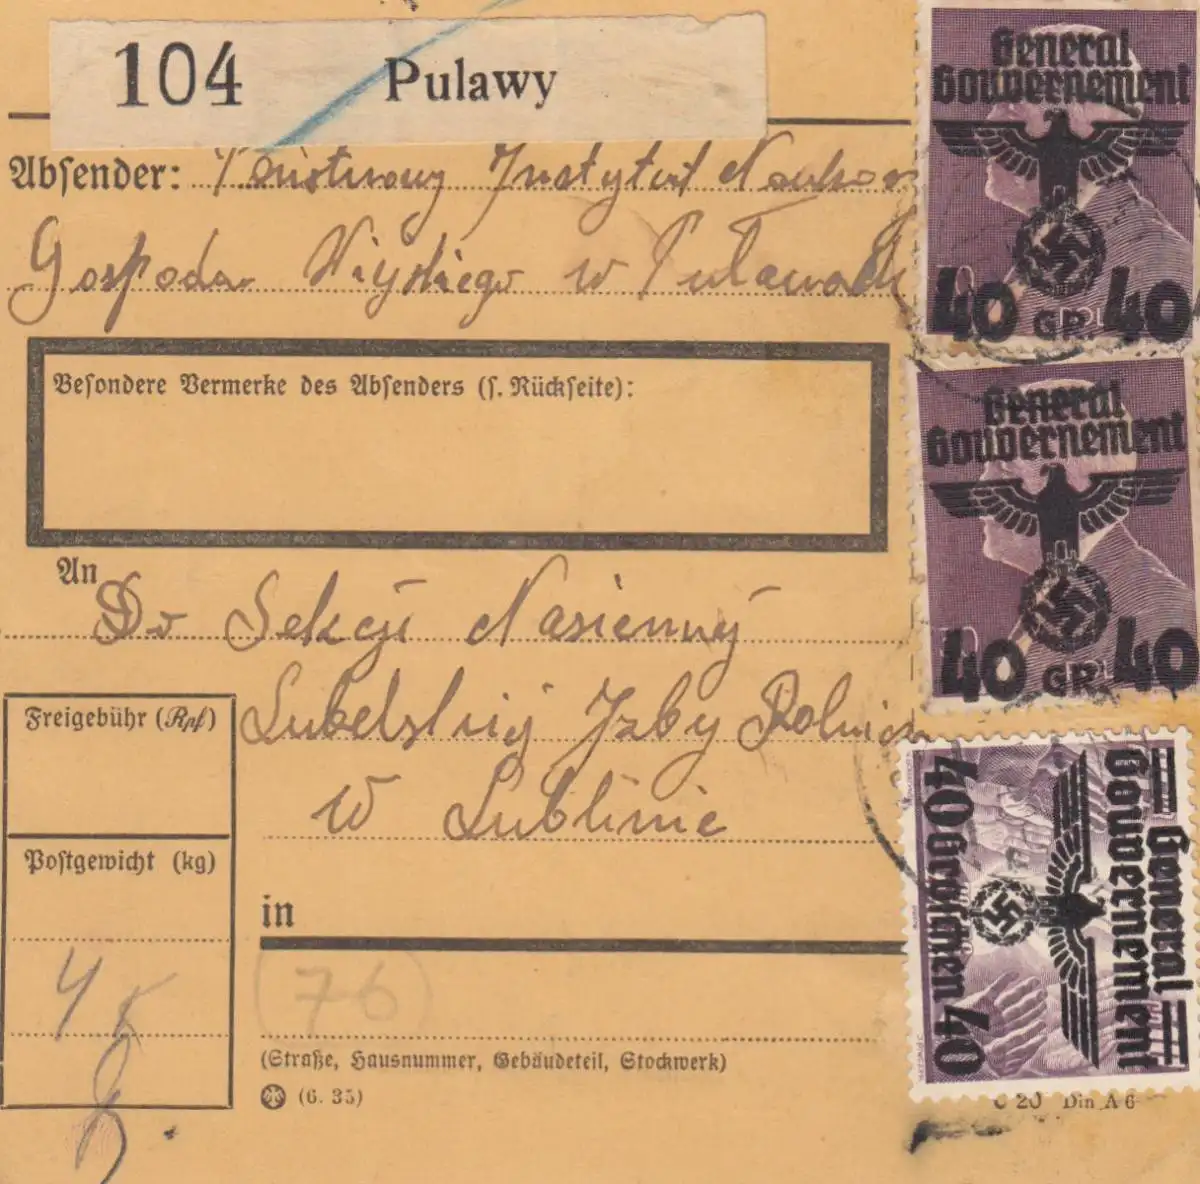 104 Pulawy
Absender: Państwowy Instytut Naukow
Gospodar. Wiejskiego w Puławach
Besondere Vermerke des Absenders (s. Rückseite):
An
Do Sekcji Nasiennej
Lubelskiej Izby Rolnicz
w Lublinie
Freigebühr (Rpf)
Postgewicht (kg)
4
in
76
(Straße, Hausnummer, Gebäudeteil, Stockwerk)
(6. 35)
C 20 Din A 6
General
Gouvernement
40 GR 40
General
Gouvernement
40 GR 40
General
Gouvernement
40 Groschen 40